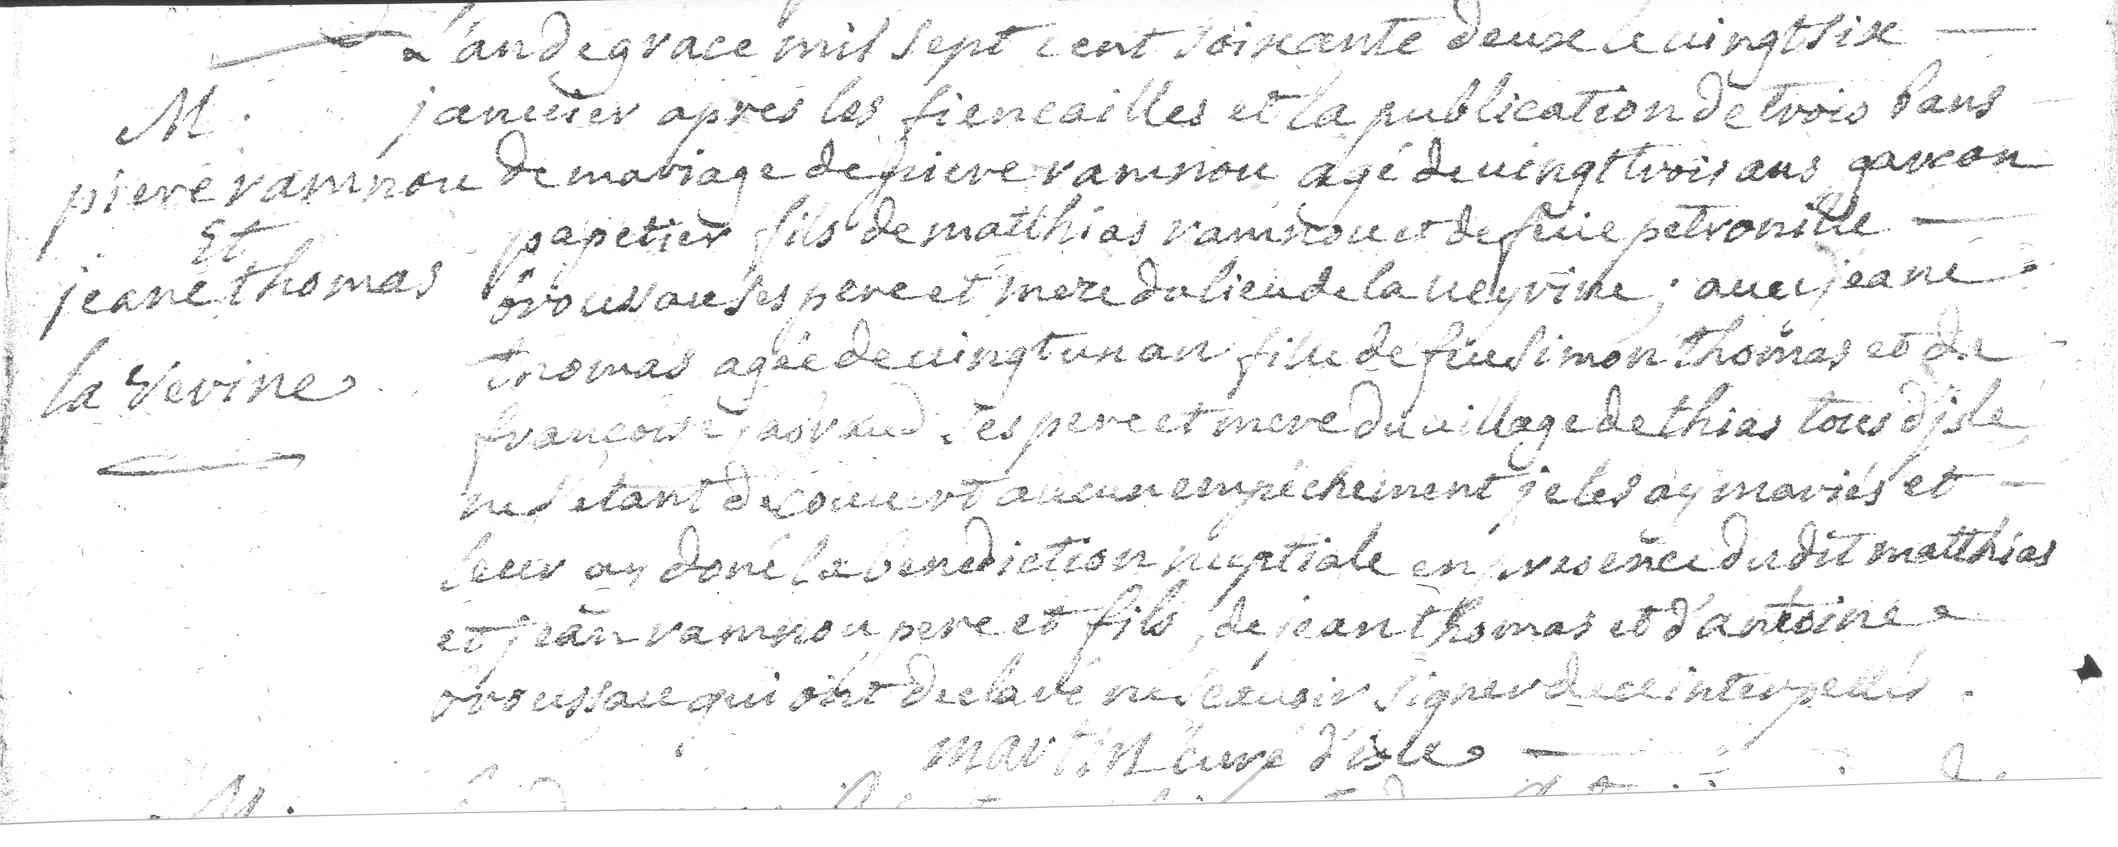 L'an de grace mil sept cent soixante deux le vingt six
M.
janvier apres les fiencailles et la publication de trois bans
piere ramnou
de mariage de piere ramnou agé de vingt trois ans garcon
Et
papetier fils de matthias ramnou et de feüe petronille
jeane thomas
broussau ses pere et mere du lieu de la veyrine ; avec jeane
thomas agée de vingt un an fille de feu simon thomas et de
la Verine
françoise ses pere et mere du village de thias tous d'jsle
ne s'etant décou­vert aucun empêchement je les ay mariés et
leur ay doné la benediction nuptiale en presence du dit matthias
et jean ramnou pere et fils, de jean thomas et d'antoine
broussau qui ont declaré ne scavoir signer de ce interpellés.
martin curé d'isle
M.